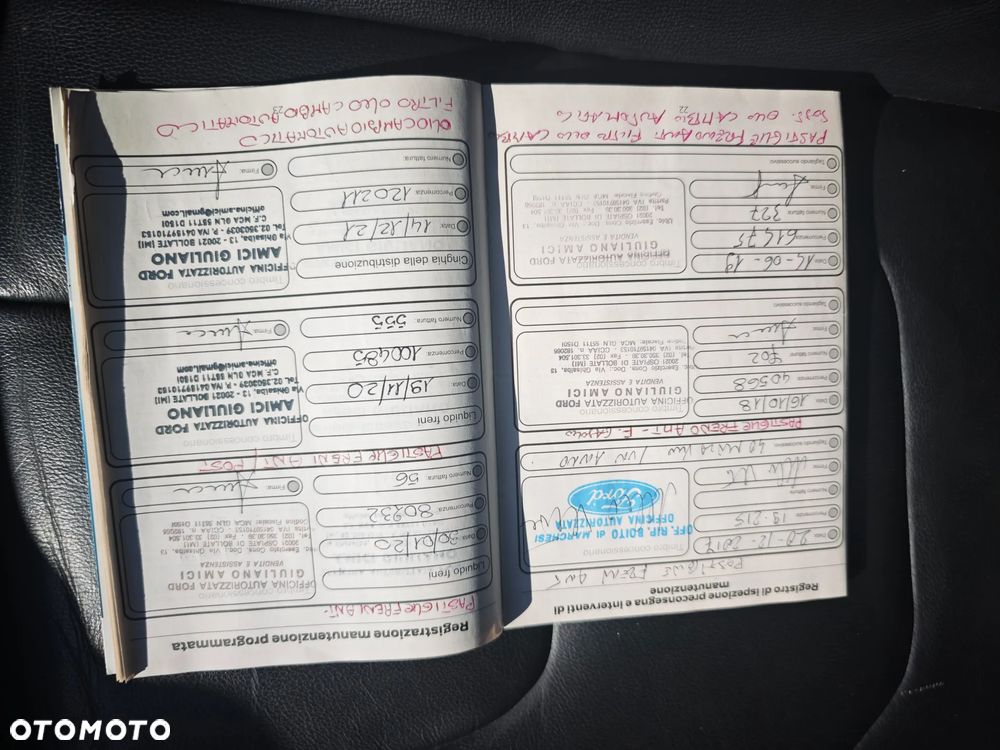 Registro di ispezione preconsegna e interventi di
manutenzione
PASTIGLIE FRENI ANT
Data: 20-12-2017
Percorrenza: 19.215
Numero fattura:
Firma:
Tagliando successivo:
OFF. RIP. BOITO di MARCHESI
OFFICINA AUTORIZZATA
Ford
PASTIGLIE FRENO ANT
Data: 16/10/18
Percorrenza: 40568
Numero fattura: 702
Firma:
Tagliando successivo:
Timbro concessionario
OFFICINA AUTORIZZATA FORD
GIULIANO AMICI
VENDITA E ASSISTENZA
20021 OSPIATE DI BOLLATE (MI)
Data: 14-06-19
Percorrenza: 61475
Numero fattura: 327
Firma:
Tagliando successivo:
Timbro concessionario
OFFICINA AUTORIZZATA FORD
GIULIANO AMICI
VENDITA E ASSISTENZA
PASTIGLIE FRENO ANT. FILTRO OLIO CAMBIO
SOST. OLIO CAMBIO AUTOMATICO
22
Registrazione manutenzione programmata
PASTIGLIE FRENI ANT.
Liquido freni
Data: 30/01/20
Percorrenza: 80932
Numero fattura: 56
Firma:
Timbro concessionario
OFFICINA AUTORIZZATA FORD
GIULIANO AMICI
VENDITA E ASSISTENZA
20021 OSPIATE DI BOLLATE (MI)
PASTIGLIE FRENI ANT/POST
Liquido freni
Data: 19/11/20
Percorrenza: 100485
Numero fattura: 555
Firma:
Timbro concessionario
OFFICINA AUTORIZZATA FORD
AMICI GIULIANO
Via Ghisalba, 13 - 20021 BOLLATE (MI)
Tel. 02.3503039 - P. IVA 04159710153
C.F. MCA GLN 55T11 D150I
officina.amici@gmail.com
Cinghia della distribuzione
Data: 14/12/21
Percorrenza: 120211
Numero fattura:
Firma:
Timbro concessionario
OFFICINA AUTORIZZATA FORD
AMICI GIULIANO
Via Ghisalba, 13 - 20021 BOLLATE (MI)
Tel. 02.3503039 - P. IVA 04159710153
C.F. MCA GLN 55T11 D150I
officina.amici@gmail.com
OLIO CAMBIO AUTOMATICO
FILTRO OLIO CAMBIO AUTOMATICO
23
OTOMOTO